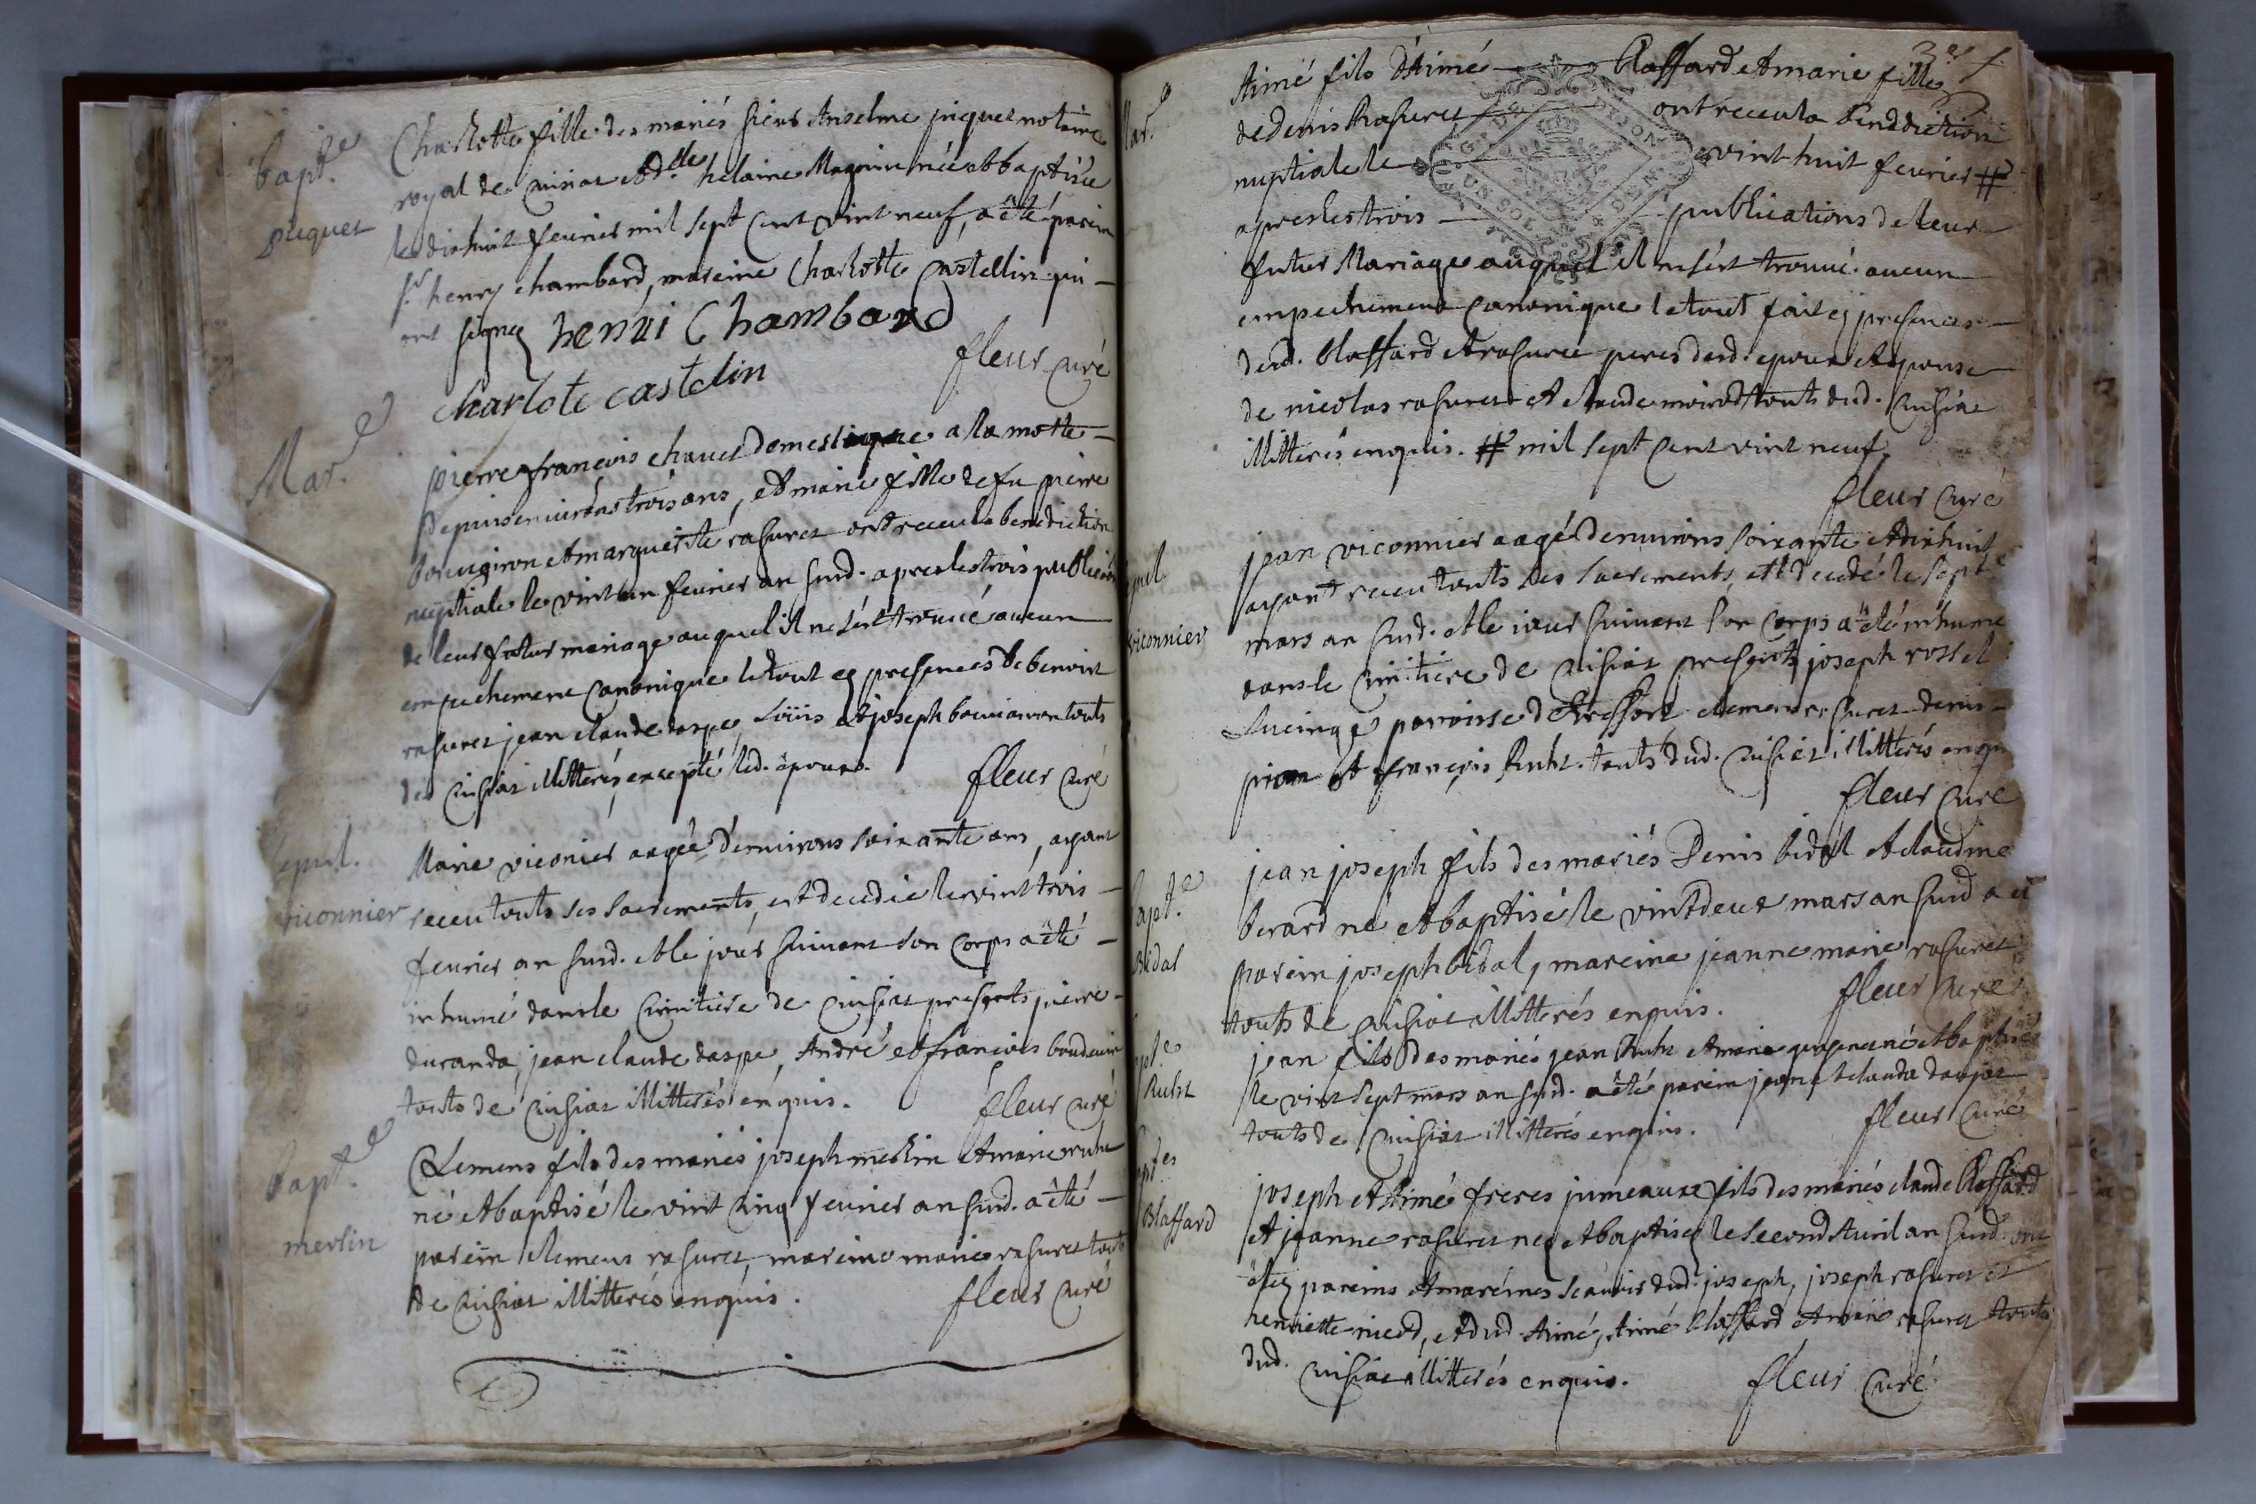 bapt.e
piquet
Charlotte fille des mariés sieur Anselme piquet notaire
royal de Cuisiat et d.lle helaine Magnin née et baptisée
le dixhuit feurier mil sept Cent vint neuf, a été parein
s.r henry chambard, mareine Charlotte Castellin qui
ont signez henri Chambard
charlote castelin
fleur curé
Mar.e
pierre françois chanel domestique a la motte
depuis enuirons trois ans, et marie fille de fu pierre
et marguerite rasurel ont receu la benediction
nuptiale le vint un feurier an susd. apres les trois
de leur futur mariage auquel il ne sést trouué aucun
empechement Canonique le tout ez presences de benoist
rasurel jean claude daspe, Loüis et joseph tous
de Cuisiat illitterés excepté led. époux.
fleur curé
sepul.
viconnier
Marie viconier aagée d'enuirons soixante ans, ayant
receu touts ses sacrements, est decedée le vint trois
feurier an susd. et le jour suiuant son corps a été
inhumé dans le Cimitiere de Cuisiat presents pierre
duranda, jean claude daspe, André et françois
touts de Cuisiat illitterés enquis.
fleur curé
bapt.e
merlin
Clemens fils des mariés joseph merlin et marie ruht
né et baptisé le vint Cinq feurier an susd. a été
parein clemens rasurel, mareine marie rasurel touts
de Cuisiat illitterés enquis.
fleur curé
Mar.e
Aimé fils d'Aimé Blaffard et marie fille
de Denis Rasurel ont receu la benediction
nuptiale le vint huit feurier #
apres les trois publications de leur
futur Mariage auquel il ne sést trouué aucun
empechement Canonique le tout fait ez presences
desd. blaffard et rasurel peres desd. epoux et epouse
de nicolas rasurel et claude touts dud. Cuisiat
illitterés enquis. # mil sept Cent vint neuf.
fleur curé
sepul
viconnier
jean viconnier aagé d'enuirons soixante et dixhuit
ayant receu touts ses sacrements, est decedé le sept
mars an susd. et le iour suiuant son corps a été inhumé
dans le Cimitiere de Cuisiat presents joseph rossel
paroisse de Treffort clemens rasurel denis
et françois Ruht touts dud. Cuisiat illitterés enquis
fleur curé
bapt.e
Bidal
jean joseph fils des mariés Denis bidal et claudine
berard né et baptisé le vintdeux mars an susd a été
parein joseph bidal, mareine jeanne marie rasurel
touts de Cuisiat illitterés enquis.
fleur curé
bapt.e
Ruht
jean fils des mariés jean Ruht et marie né et baptisé
le vint sept mars an susd. a été parein jean claude
touts de Cuisiat illitterés enquis.
fleur curé
bapt.es
Blaffard
joseph et Aimé freres jumeaux fils des mariés claude Blaffard
et jeanne rasurel nez et baptisez le second Auril an susd. ont
étez pareins et mareines scauoir dud. joseph, joseph rasurel et
henriette nicod, et dud Aimé, Aimé Blaffard et rasurel touts
dud. Cuisiat illitterés enquis.
fleur curé